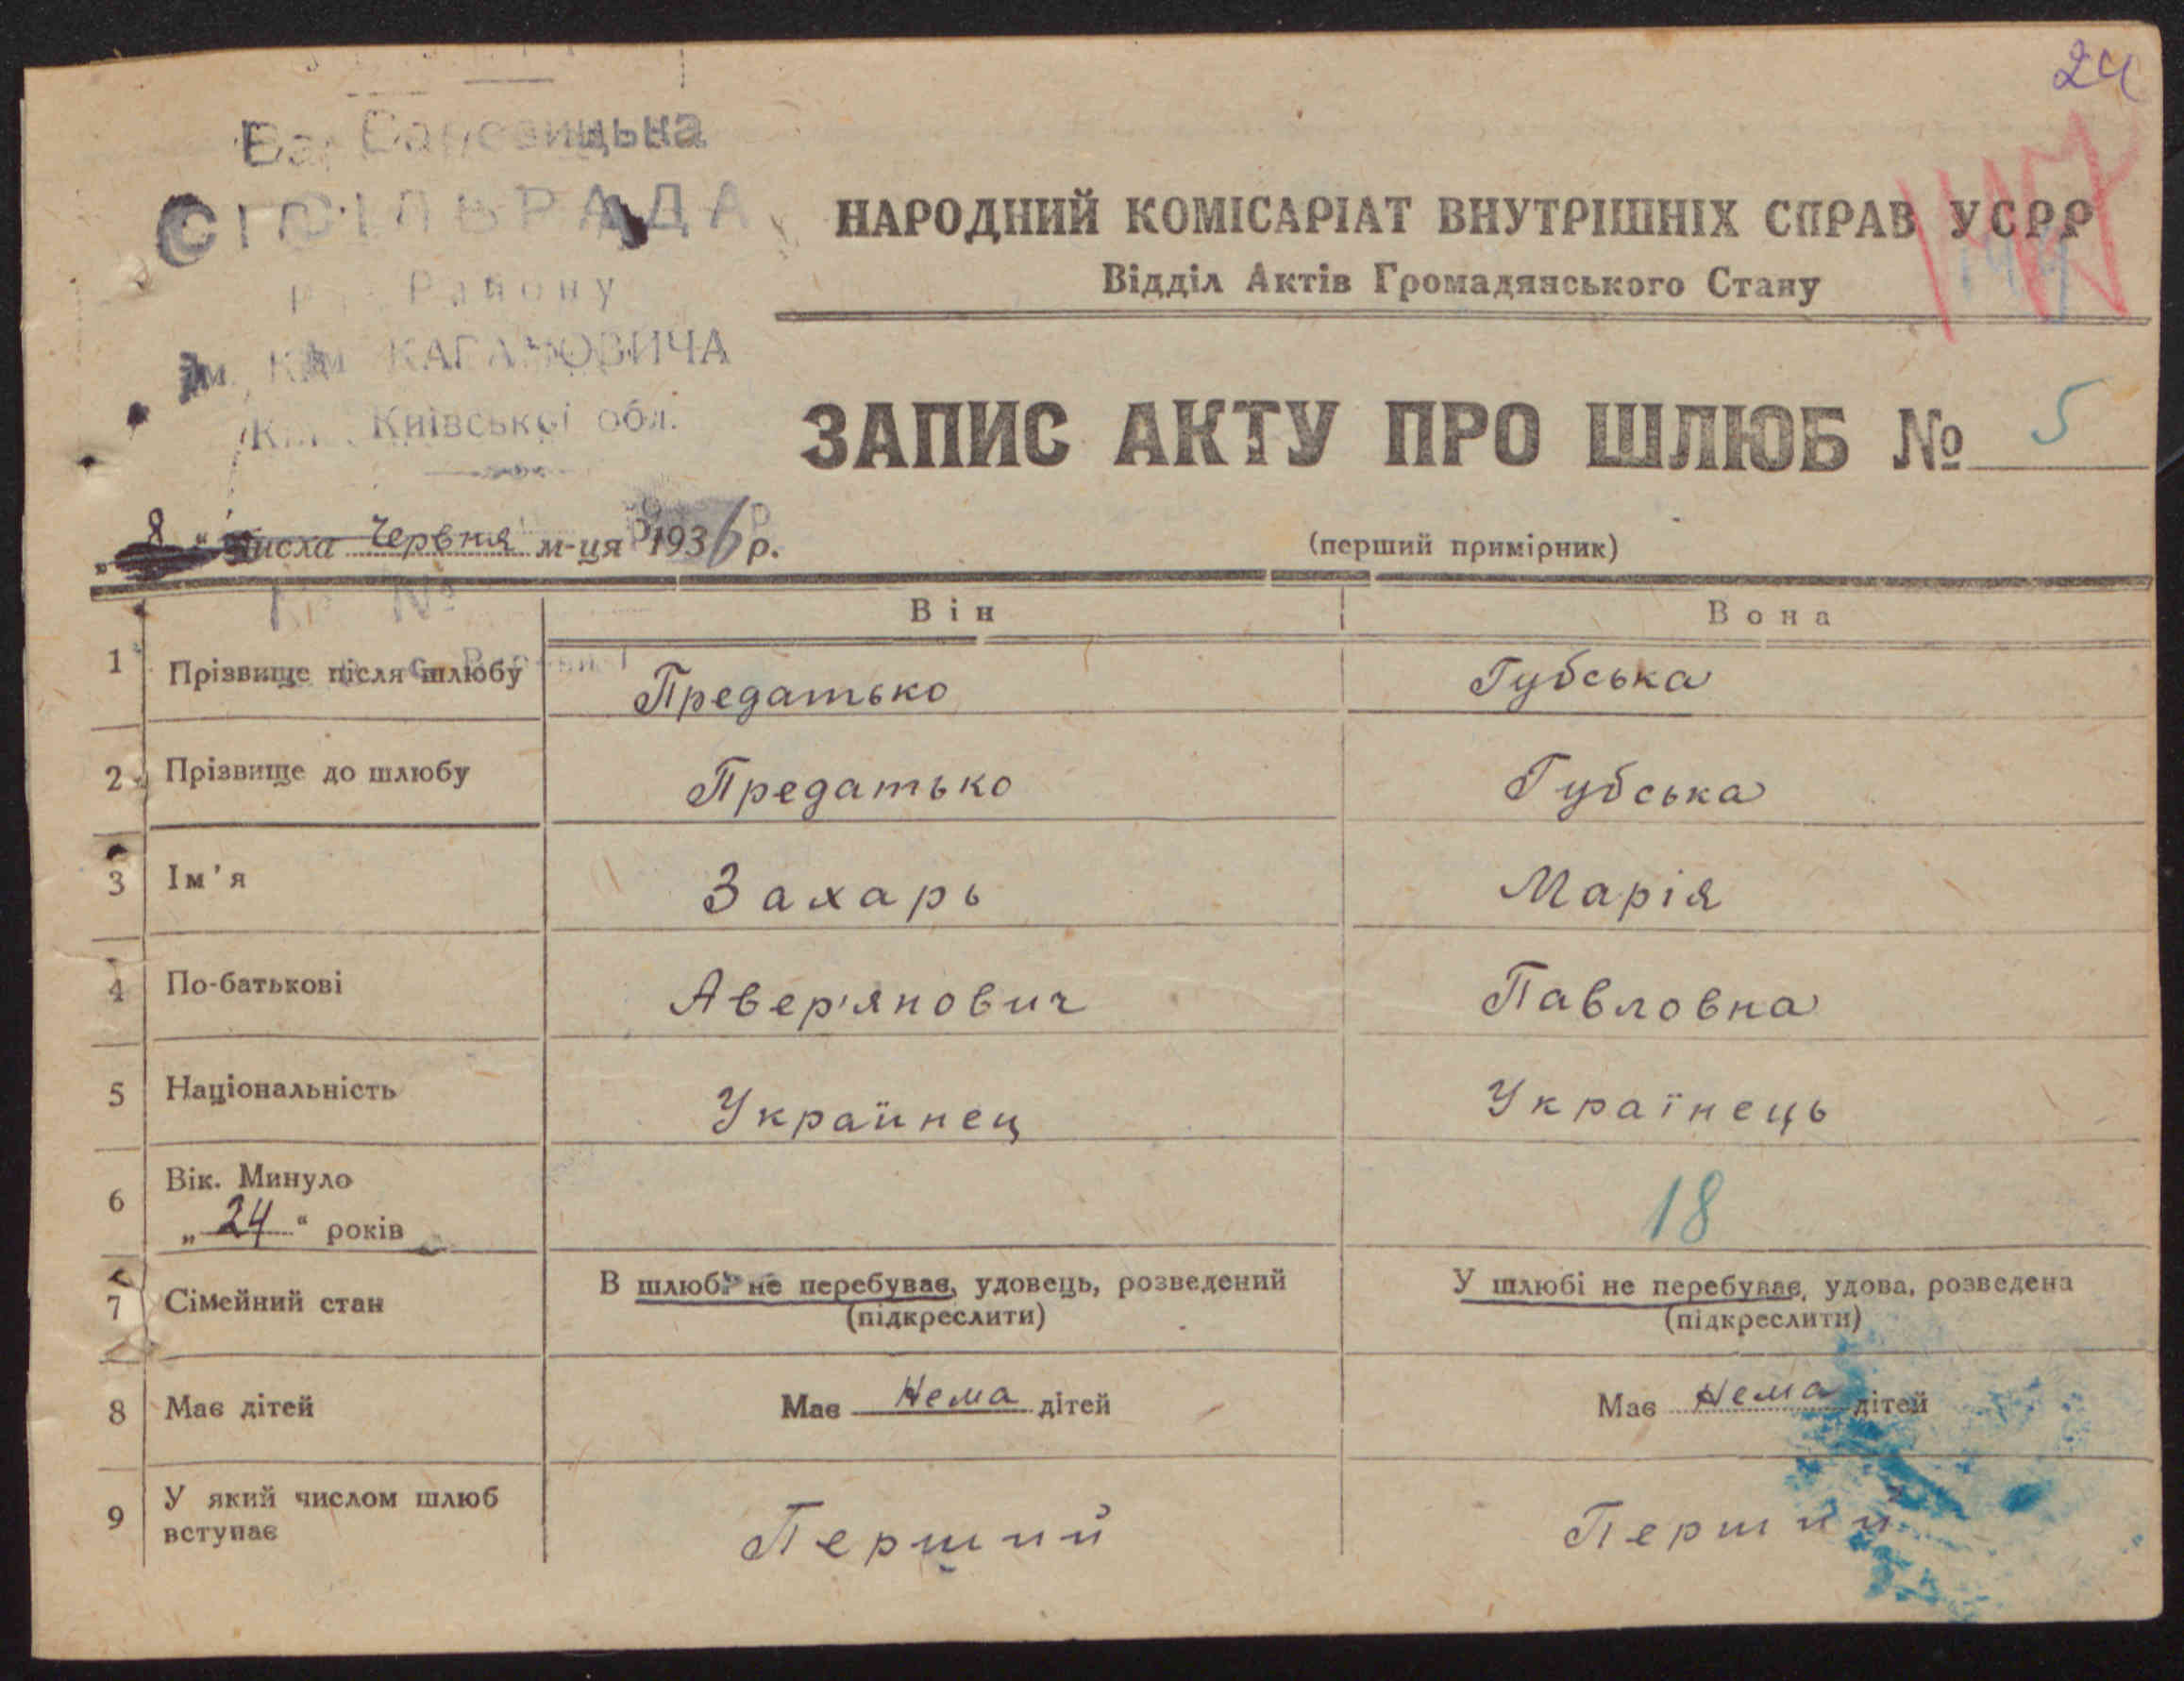 24
СІЛЬРАДА
Району
ім. КАГАНОВИЧА
Київської обл.
НАРОДНИЙ КОМІСАРІАТ ВНУТРІШНІХ СПРАВ УСРР
Відділ Актів Громадянського Стану
ЗАПИС АКТУ ПРО ШЛЮБ № 5
„8“ числа Червня м-ця 1936 р.
(перший примірник)
Він Вона
1 Прізвище після шлюбу Предатько Губська
2 Прізвище до шлюбу Предатько Губська
3 Ім'я Захарь Марія
4 По-батькові Авер'янович Павловна
5 Національність Украйнец Українець
6 Вік. Минуло
„24“ років 18
7 Сімейний стан В шлюбі не перебуває, удовець, розведений У шлюбі не перебуває, удова, розведена
(підкреслити) (підкреслити)
8 Має дітей Має Нема дітей Має Нема дітей
9 У який числом шлюб
вступає Перший Перший